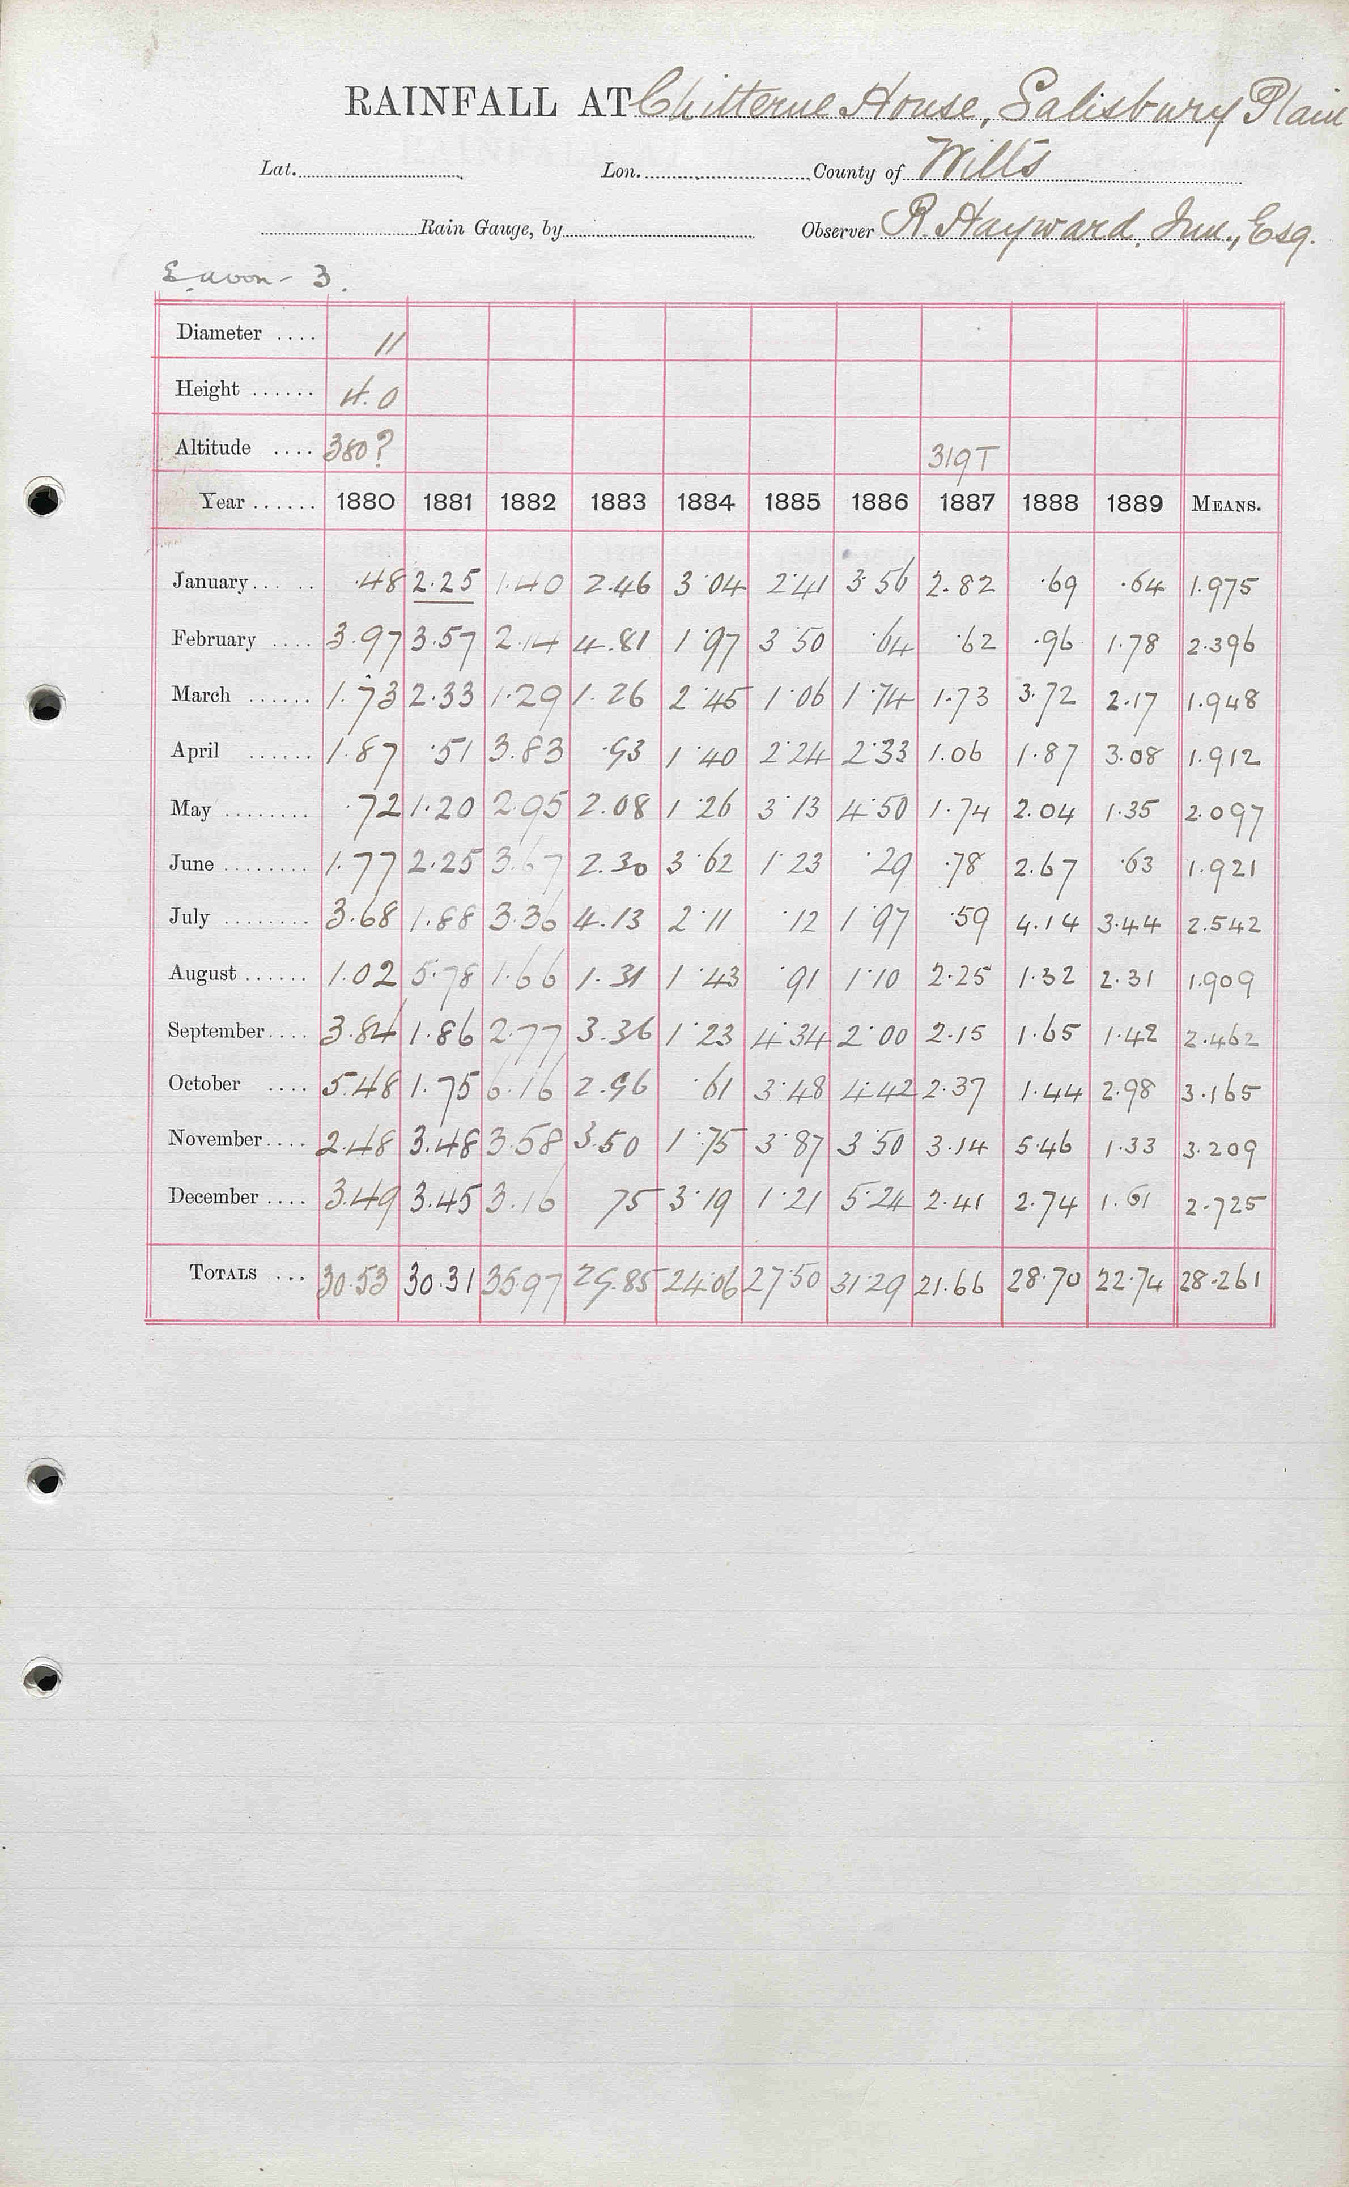 RAINFALL AT Chitterne House, Salisbury Plain
Lat. Lon. County of Wilts
Rain Gauge, by Observer R. Hayward, Jun., Esq.
E. Avon - 3.
Diameter .... 11
Height ...... 4.0
Altitude .... 380? 319T
Year ...... 1880 1881 1882 1883 1884 1885 1886 1887 1888 1889 MEANS.
January...... .48 2.25 1.40 2.46 3.04 2.41 3.56 2.82 .69 .64 1.975
February .... 3.97 3.57 2.14 4.81 1.97 3.50 .64 .62 .96 1.78 2.396
March ...... 1.73 2.33 1.29 1.26 2.45 1.06 1.74 1.73 3.72 2.17 1.948
April ...... 1.87 .51 3.83 .93 1.40 2.24 2.33 1.06 1.87 3.08 1.912
May ........ .72 1.20 2.95 2.08 1.26 3.13 4.50 1.74 2.04 1.35 2.097
June ........ 1.77 2.25 3.67 2.30 3.62 1.23 .29 .78 2.67 .63 1.921
July ........ 3.68 1.88 3.36 4.13 2.11 .12 1.97 .59 4.14 3.44 2.542
August ...... 1.02 5.78 1.66 1.31 1.43 .91 1.10 2.25 1.32 2.31 1.909
September.... 3.84 1.86 2.77 3.36 1.23 4.34 2.00 2.15 1.65 1.42 2.462
October .... 5.48 1.75 6.16 2.96 .61 3.48 4.42 2.37 1.44 2.98 3.165
November.... 2.48 3.48 3.58 3.50 1.75 3.87 3.50 3.14 5.46 1.33 3.209
December .... 3.49 3.45 3.16 75 3.19 1.21 5.24 2.41 2.74 1.61 2.725
TOTALS ... 30.53 30.31 35.97 29.85 24.06 27.50 31.29 21.66 28.70 22.74 28.261